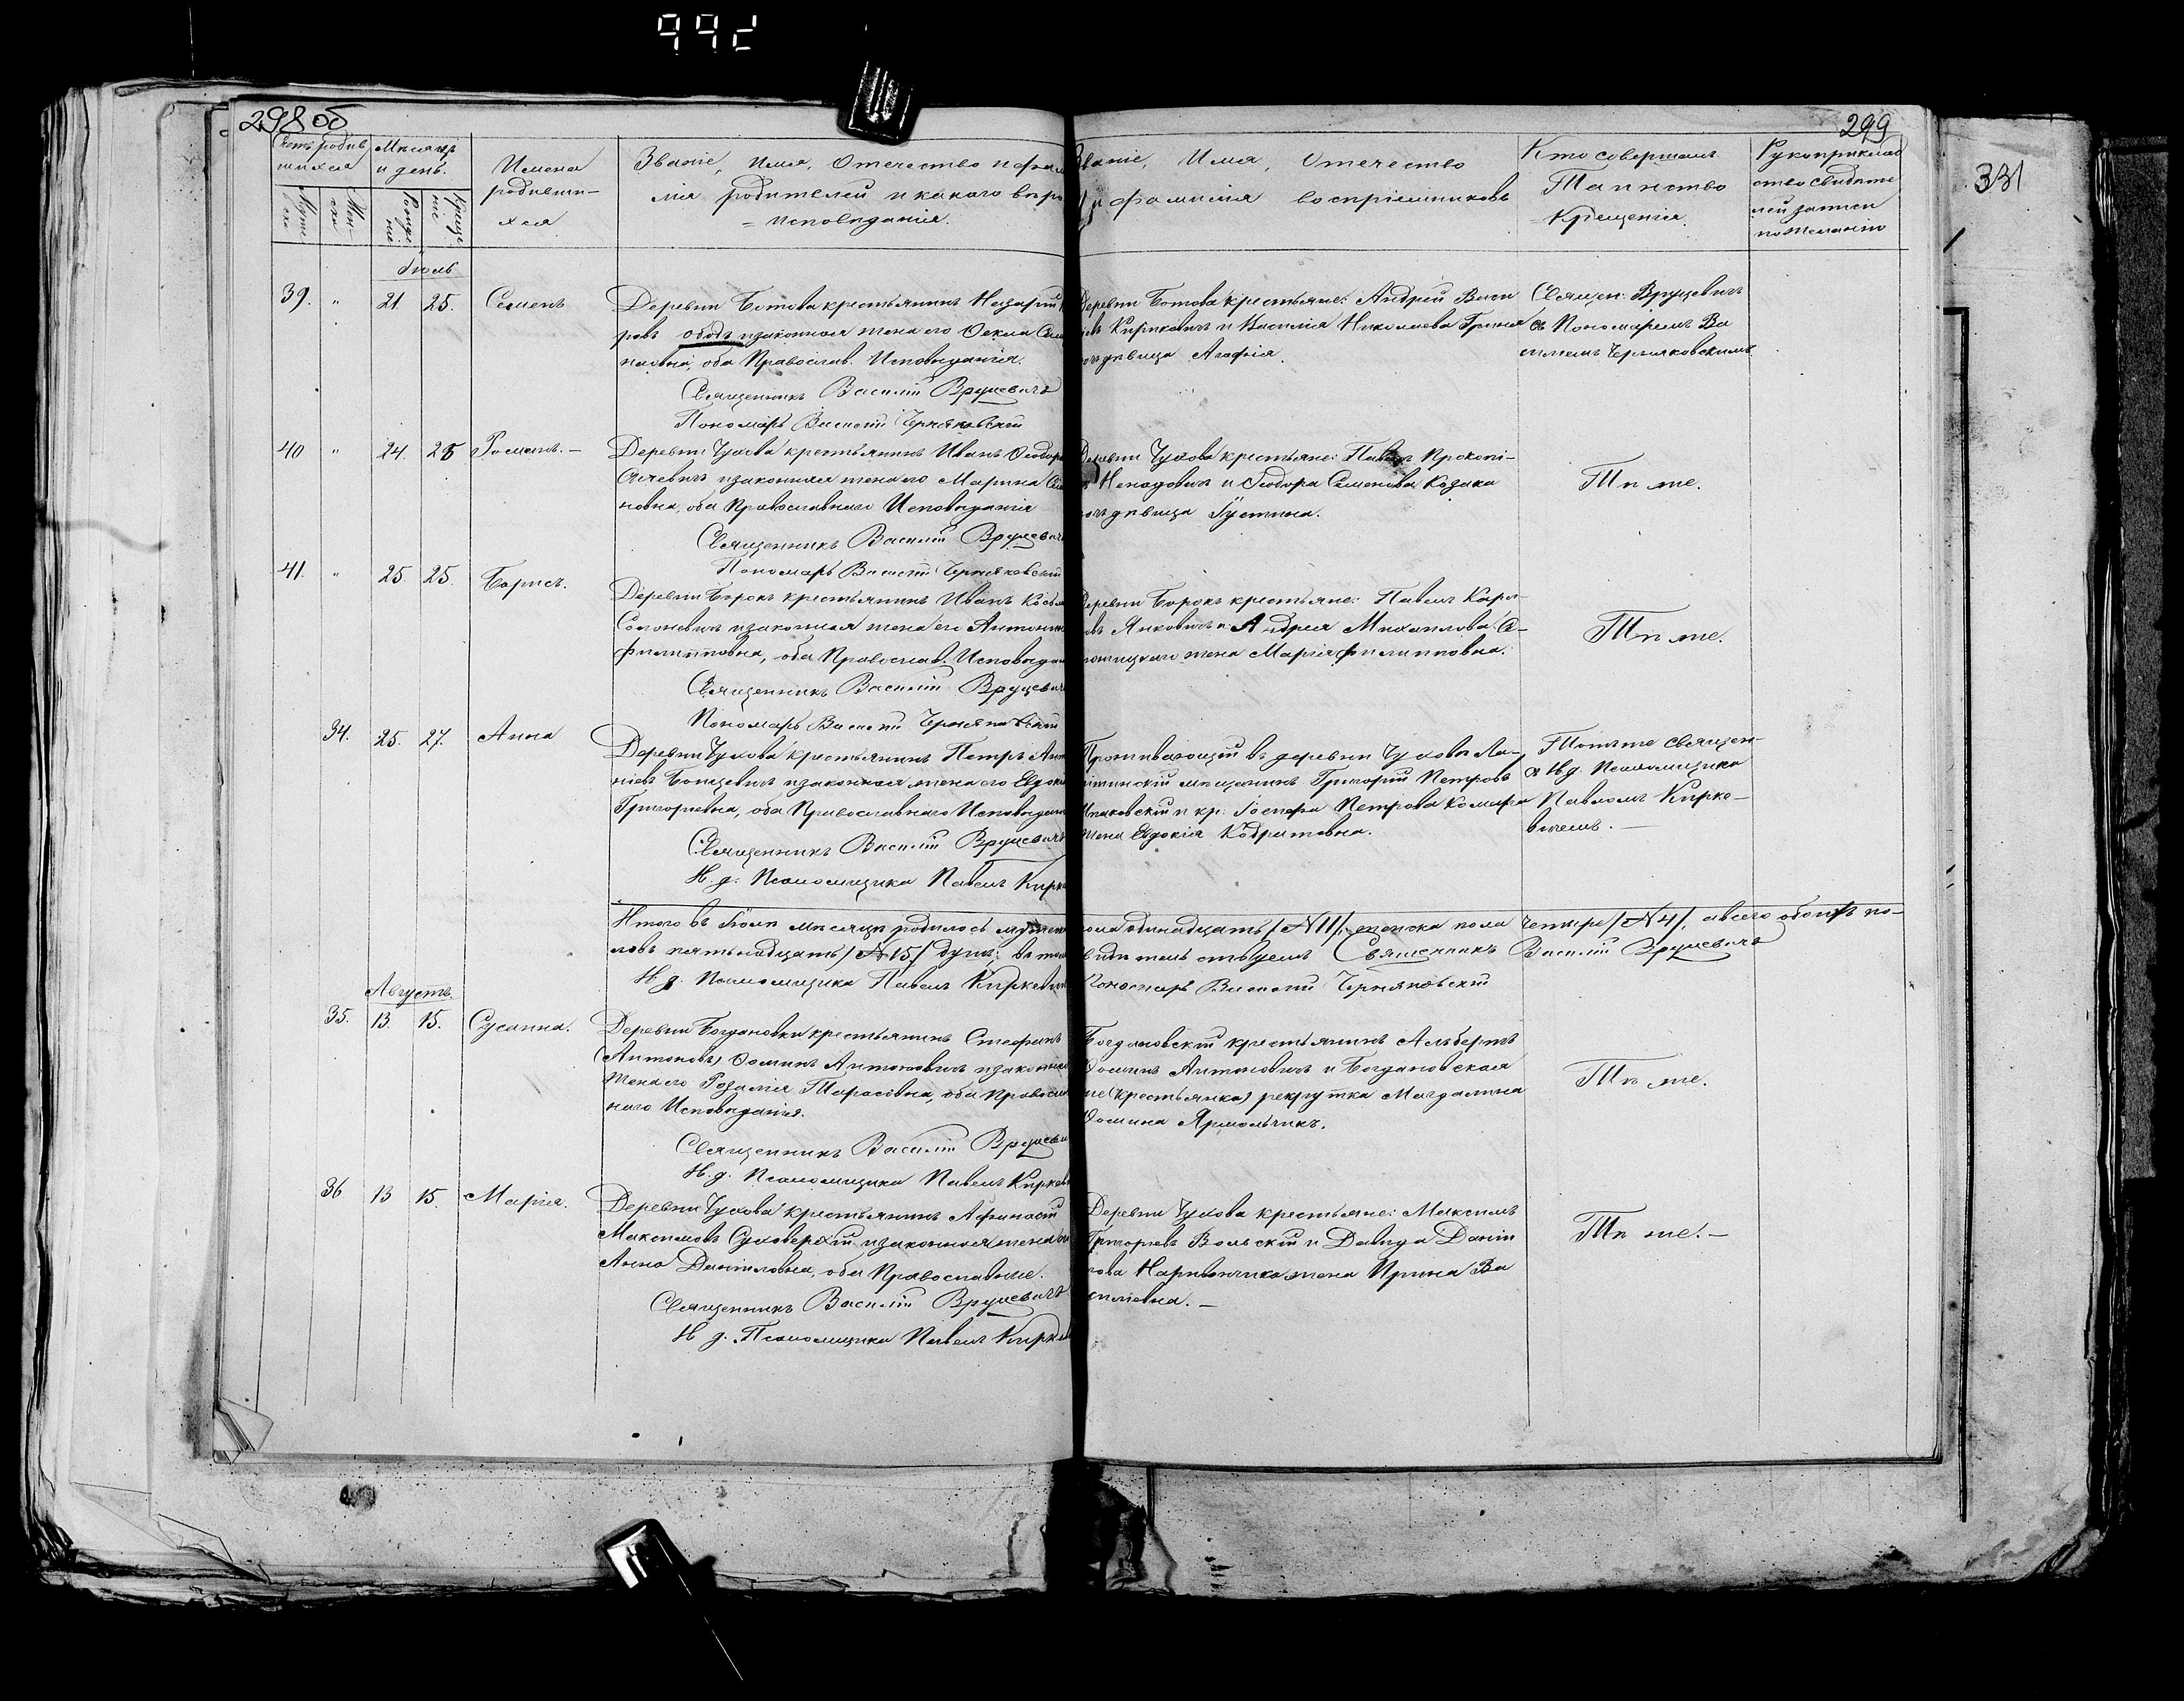 992
298 об
299
331
Счетъ родив
шихся
Мѣсяцъ
и день.
Имена
родивши-
хся
Званіе, Имя, Отечество и фами
лія родителей и какого вѣро
= исповѣданія.
Званіе, Имя, Отечество
и фамилія воспріемниковъ
Кто совершалъ
Таинство
Крещенія.
Рукоприклад
ство свидѣте
лей записи
по желанію
Муже
ска
Жен
ска
Рожде
нія
Креще
нія
Іюль
39. " 21. 25. Семенъ
Деревни Ботова крестьянинъ Назарій
ровъ ободъ и законная жена его Ѳекла Сам
оба Православ. Исповѣданія.
Священникъ Василій Вруцевичъ
Пономарь Василій Черняковскій
Деревни Ботова крестьяне: Андрей Васи
Кириковичъ и Василія Николаева Грина
дѣвица Агафія.
Священ: Вруцевичъ
съ Пономаремъ Ва
силіемъ Черняковскимъ
40 " 24. 25 Романъ. —
Деревни Чухова крестьянинъ Иванъ Ѳеодор
и законная жена его Марина Сем
новна, оба Православнаго Исповѣданія
Священникъ Василій Вруцевич
Пономарь Василій Черняковскій
Деревни Чухова крестьяне: Павелъ Прокопі-
Ненадовичъ и Ѳеодора Семенова Козака
дѣвица Іустина.
Тѣ же.
41. " 25. 25. Борисъ.
Деревни Борокъ крестьянинъ Иванъ Косьм
Солоневичъ и законная жена его Антонин
Филипповна, оба Православ. Исповѣдан
Священникъ Василій Вруцевич
Пономарь Василій Черняковскій
Деревни Борокъ крестьяне: Павелъ Карп
овъ Янковичъ и Андрея Михаилова Са-
жена Марія Филипповна.
Тѣ же.
34. 25. 27. Анна
Деревни Чухова крестьянинъ Петръ Ант
ніевъ Боищевичъ и законная жена его Евдокі
Григорьевна, оба Православнаго Исповѣдан
Священникъ Василій Вруцевичъ
И. д. Псаломщика Павелъ Кирке
Проживающій въ деревни Чуховѣ Ла-
шинскій мѣщанинъ Григорій Петровъ
и кр. Іосифа Петрова Комара
жена Евдокія Кодратовна.
Тотъ же священ-
съ И.д. Псаломщика
Павломъ Кирке-
вичемъ. —
Итого въ Іюлѣ мѣсяцѣ родилось мужеск
пола одинадцать /№11/, женска пола четыре /№4/, а всего обоихъ по-
ловъ пятьнадцать /№15/ душъ; въ том
свидѣтельствуемъ Священникъ Василій Вруцевичъ
И д. Псаломщика Павелъ Киркевич
Пономарь Василій Черняковскій
Августъ.
35. 13. 15. Сусанна.
Деревни Богдановки крестьянинъ Стефанъ
(Антоновъ) Ѳоминъ Антоновичъ и законная
жена его Розалія Тарасовна, оба Православ
наго Исповѣданія.
Священникъ Василій Вруцеви
И. д. Псаломщика Павелъ Киркеви
Богдановскій крестьянинъ Альбертъ
Ѳоминъ Антоновичъ и Богдановская
же (крестьянка) рекрутка Магдалина
Ѳомина Ярмольчикъ.
Тѣ же.
36 13 15. Марія.
Деревни Чухова крестьянинъ Аѳанасій
Максимовъ Суховерхій и законная жена его
Анна Даниловна, оба Православные.
Священникъ Василій Вруцевичъ
И д. Псаломщика Павелъ Кирке
Деревни Чухова крестьяне: Максимъ
Григорьевъ Вольскій и Давида Даніи
лова жена Ирина Ва
силіевна. —
Тѣ же. —